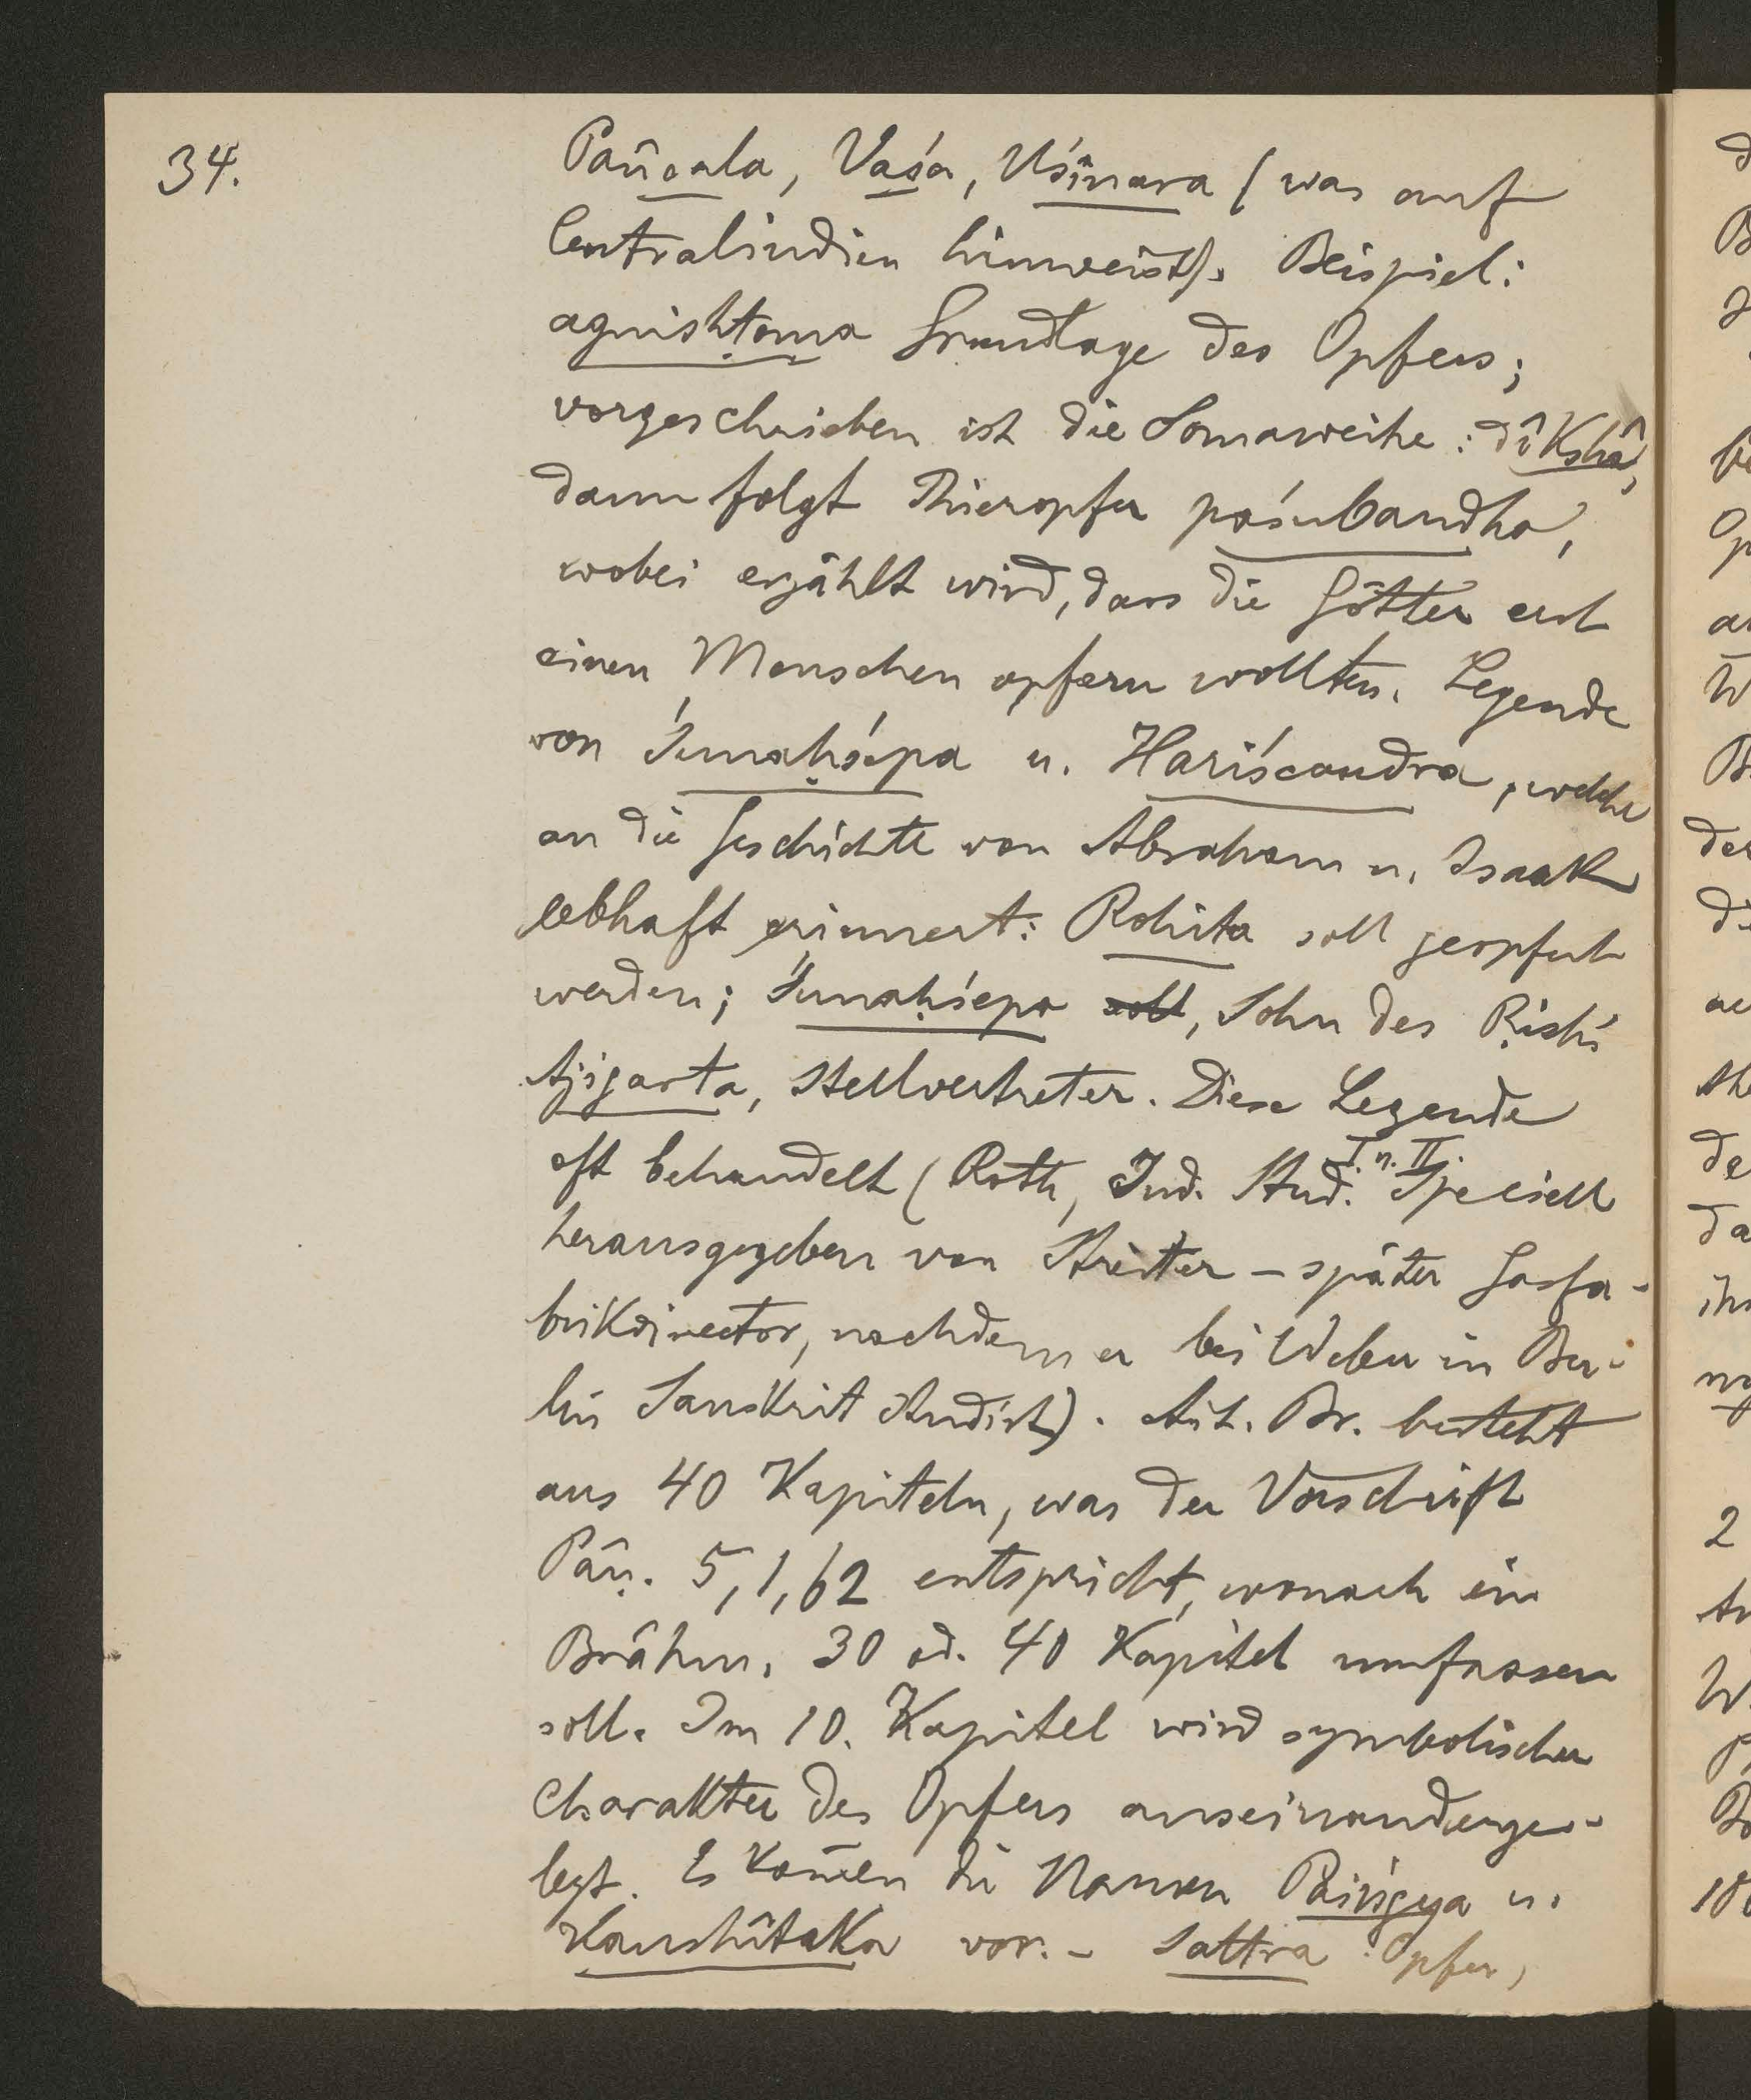 34.
Pañcala, Vaśa, Uśînara (was auf
Centralindien hinweist). Beispiel:
agnishṭoma Grundlage des Opfers;
vorgeschrieben ist die Somaweihe: dîkshâ,
dann folgt Thieropfer paśubandha,
wobei erzählt wird, dass die Götter erst
einen Menschen opfern wollten. Legende
von Śunaḥśepa u. Hariścandra, welche
an die Geschichte von Abraham u. Isaak
lebhaft erinnert: Rohita soll geopfert
werden; Śunaḥśepa soll, Sohn des Ṛishi
Ajigarta, Stellvertreter. Diese Legende
oft behandelt (Roth, Ind. Stud. I. u. II. Speciell
herausgegeben von Streiter – später Gasfa-
brikdirector, nachdem er bei Weber in Ber-
lin Sanskrit studirt). Ait. Br. besteht
aus 40 Kapiteln, was der Vorschrift
Pâṇ. 5,1,62 entspricht, wonach ein
Brâhm. 30 od. 40 Kapitel umfassen
soll. Im 10. Kapitel wird symbolischer
Charakter des Opfers auseinanderge-
legt. Es kom̄en die Namen Paiṅgya u.
Kaushîtaka vor. – Sattra Opfer,